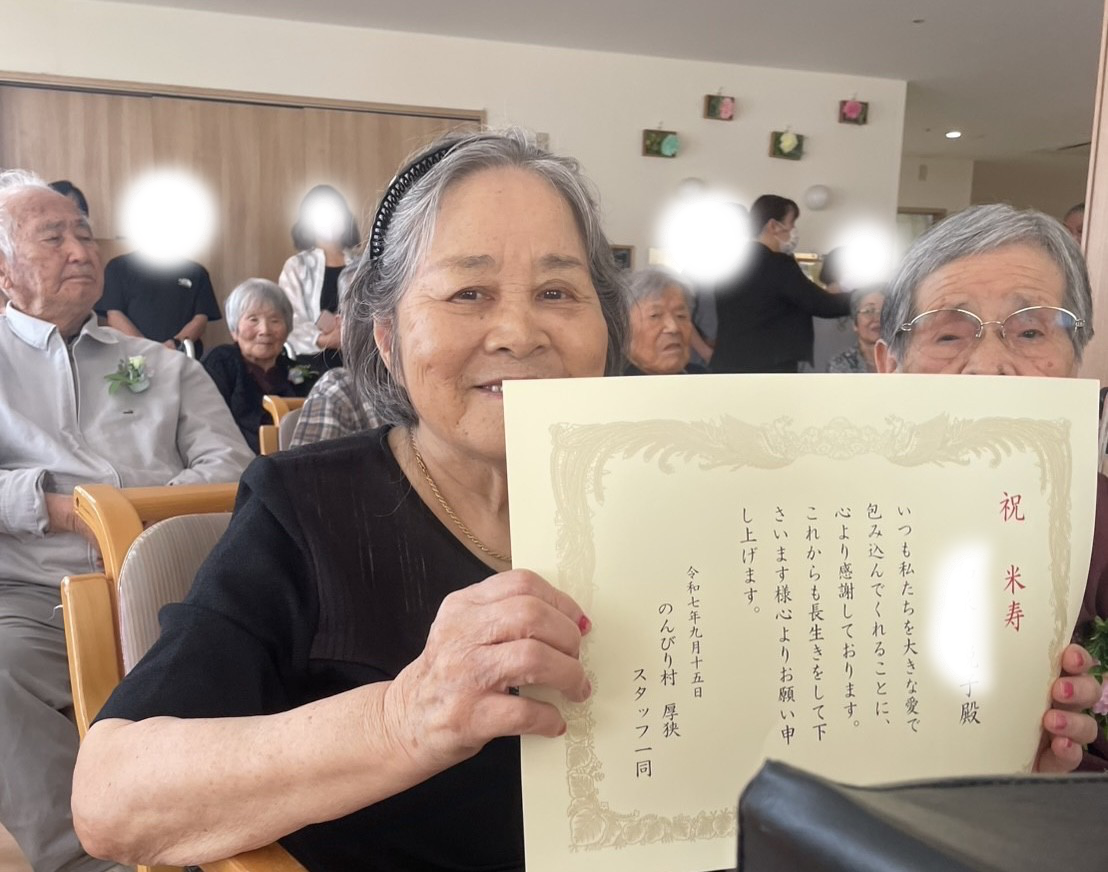 祝 米寿
殿
いつも私たちを大きな愛で
包み込んでくれることに、
心より感謝しております。
これからも長生きをして下
さいます様心よりお願い申
し上げます。
令和七年九月十五日
のんびり村 厚狭
スタッフ一同